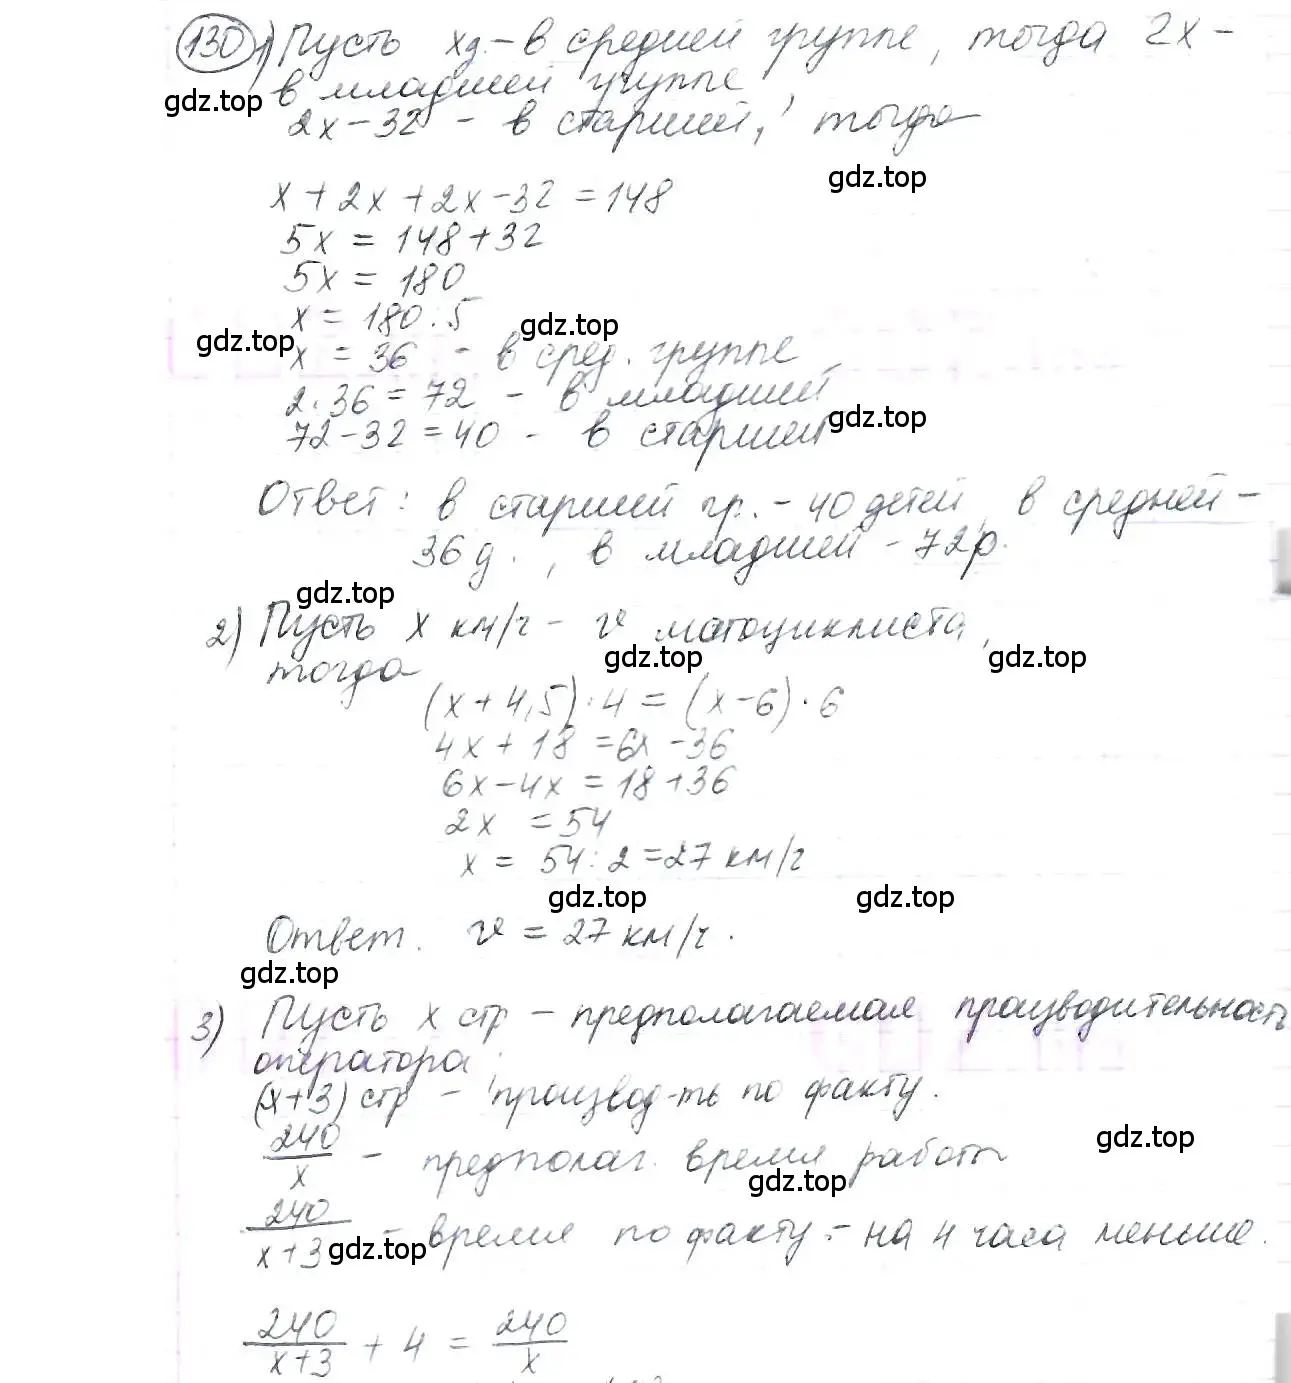 130 1) Пусть х д. – в средней группе, тогда 2х –
в младшей группе,
gdz.top
2х – 32 – в старшей, тогда
gdz.top
х + 2х + 2х – 32 = 148
5х = 148 + 32
5х = 180
х = 180 : 5
gdz.top
gdz.top
х = 36 – в сред. группе
2 · 36 = 72 – в младшей
gdz.top
72 – 32 = 40 – в старшей
Ответ: в старшей гр. – 40 детей, в средней –
36 д., в младшей – 72 р.
gdz.top
2) Пусть х км/ч – v мотоциклиста,
gdz.top gdz.top
тогда
(х + 4,5) · 4 = (х – 6) · 6
4х + 18 = 6х – 36
6х – 4х = 18 + 36
2х = 54
х = 54 : 2 = 27 км/ч
gdz.top gdz.top
Ответ. v = 27 км/ч.
gdz.top
3) Пусть х стр – предполагаемая производительность
оператора,
(х + 3) стр – производ-ть по факту.
gdz.top
240/х – предполаг. время работы
gdz.top
240/(х + 3) – время по факту – на 4 часа меньше.
gdz.top
240/(х + 3) + 4 = 240/х